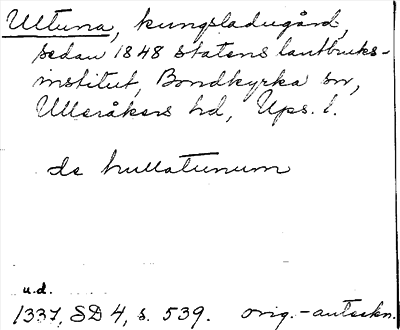 Ultuna, kungsladugård,
sedan 1848 statens lantbruks-
institut, Bondkyrka sn,
Ulleråkers hd, Ups. l.
de hullatunum
u.d.
1337, SD 4, s. 539. orig.-avskr.